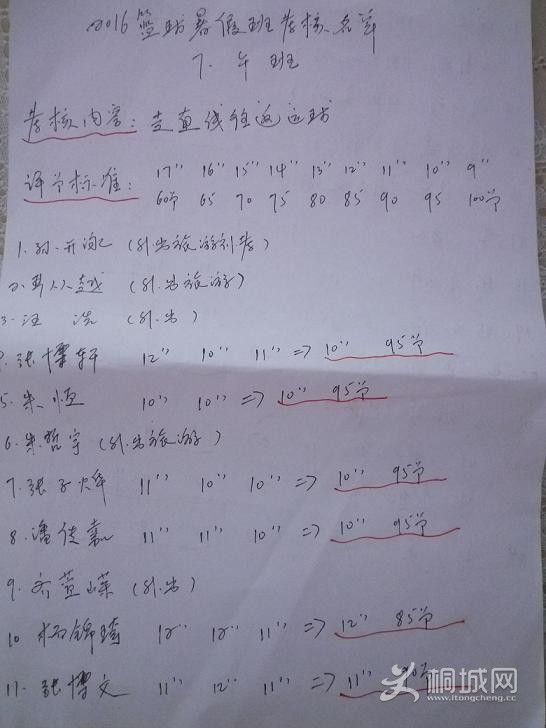 2016篮球暑假班考核名单
7. 午 班
考核内容: 走直线往返运球
评分标准: 17" 16" 15" 14" 13" 12" 11" 10" 9"
60分 65 70 75 80 85 90 95 100分
1. 开 (外出旅游补考)
2. 越 (外出旅游)
3. 汪 浩 (外出)
4. 张博轩 12" 10" 11" => 10" 95分
5. 朱恒 10" 10" => 10" 95分
6. 朱哲宇 (外出旅游)
7. 张子烨 11" 10" 10" => 10" 95分
8. 潘佳嘉 11" 11" 10" => 10" 95分
9. 齐萱 (外出)
10 锦琦 12" 12" 11" => 12" 85分
11. 张博文 11" 12" 11" => 11" 90分
桐城网
www.itongcheng.cc